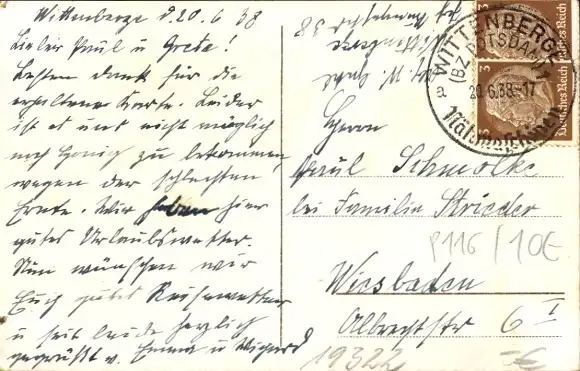 Wittenberge d. 20.6.38
Lieber Paul u Grete!
Besten Dank für die
erhaltene Karte. Leider
ist es uns nicht möglich
noch Honig zu bekommen,
wegen der schlechten
Ernte. Wir haben hier
gutes Urlaubswetter.
Nun wünschen wir
Euch gutes Reisewetter
u seit beide herzlich
gegrüßt v. Emma u
WITTENBERGE
(BZ. POTSDAM) 1
a
20.6.38.-17
Nähmaschinen
3
Deutsches Reich
3
Deutsches Reich
Herrn
Paul Schmolke
bei Familie Strieder
Wiesbaden
Albrechtstr 6 I
P116/10€
19322